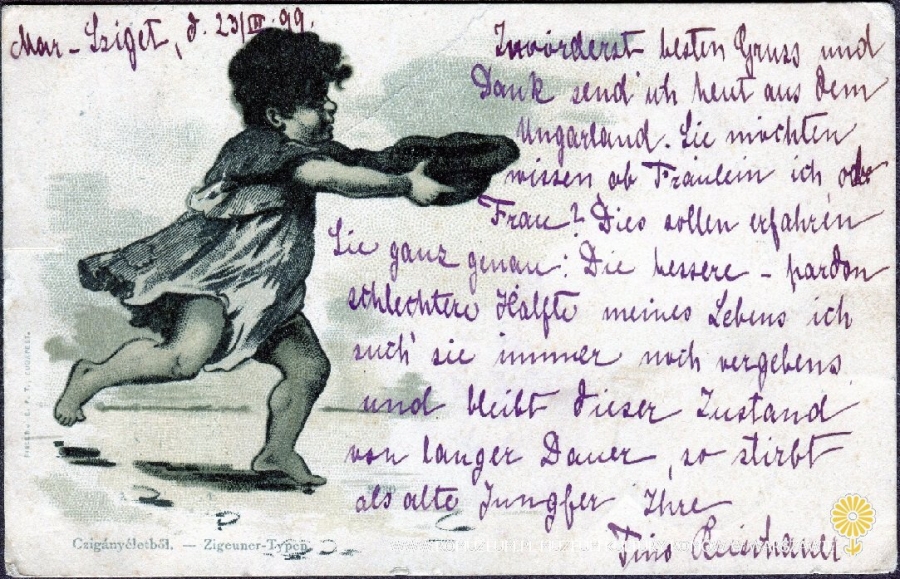 Mar-Sziget, d. 23/III. 99.
Zuvörderst besten Gruss und
Dank send' ich heut aus dem
Ungarland. Sie möchten
wissen ob Fräulein ich oder
Frau? Dies sollen erfahren
Sie ganz genau: Die bessere – pardon
schlechtere Hälfte meines Lebens ich
such' sie immer noch vergebens
und bleibt dieser Zustand
von langer Dauer, so stirbt
als alte Jungfer Ihre
Tino
Czigányéletből. — Zigeuner-Typen.
BUDAPEST.